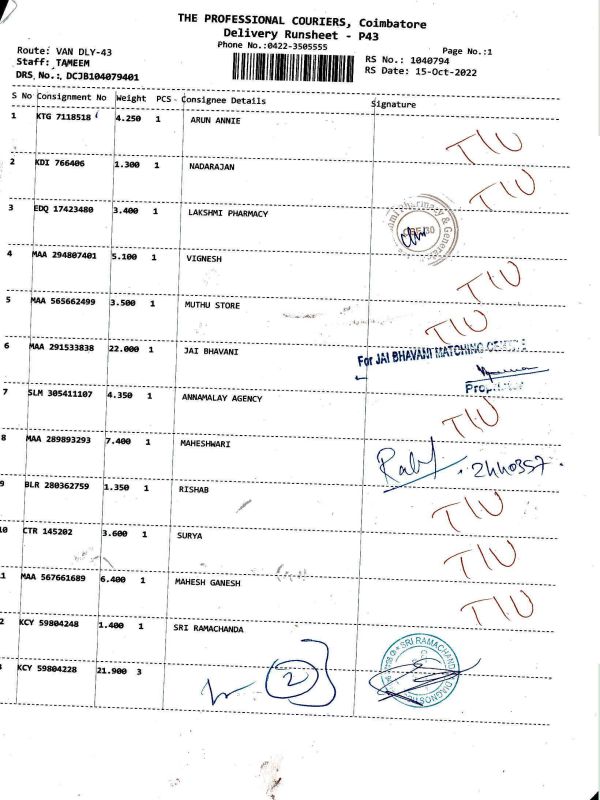 THE PROFESSIONAL COURIERS, Coimbatore
Delivery Runsheet - P43
Phone No.:0422-3505555
Page No.:1
Route: VAN DLY-43
Staff: TAMEEM
DRS No.: DCJB104079401
RS No.: 1040794
RS Date: 15-Oct-2022
S No Consignment No Weight PCS - Consignee Details Signature
1 KTG 7118518 4.250 1 ARUN ANNIE TIU
2 KDI 766406 1.300 1 NADARAJAN TIU
3 EDQ 17423480 3.400 1 LAKSHMI PHARMACY
4 MAA 294807401 5.100 1 VIGNESH TIU
5 MAA 565662499 3.500 1 MUTHU STORE TIU
6 MAA 291533838 22.000 1 JAI BHAVANI
For JAI BHAVANI MATCHING CENTRE
7 SLM 305411107 4.350 1 ANNAMALAY AGENCY TIU
8 MAA 289893293 7.400 1 MAHESHWARI 2440357
9 BLR 280362759 1.350 1 RISHAB TIU
10 CTR 145202 3.600 1 SURYA TIU
1 MAA 567661689 6.400 1 MAHESH GANESH TIU
2 KCY 59804248 1.400 1 SRI RAMACHANDA
KCY 59804228 21.900 3
2
SRI RAMACHANDA DIAGNOSTIC